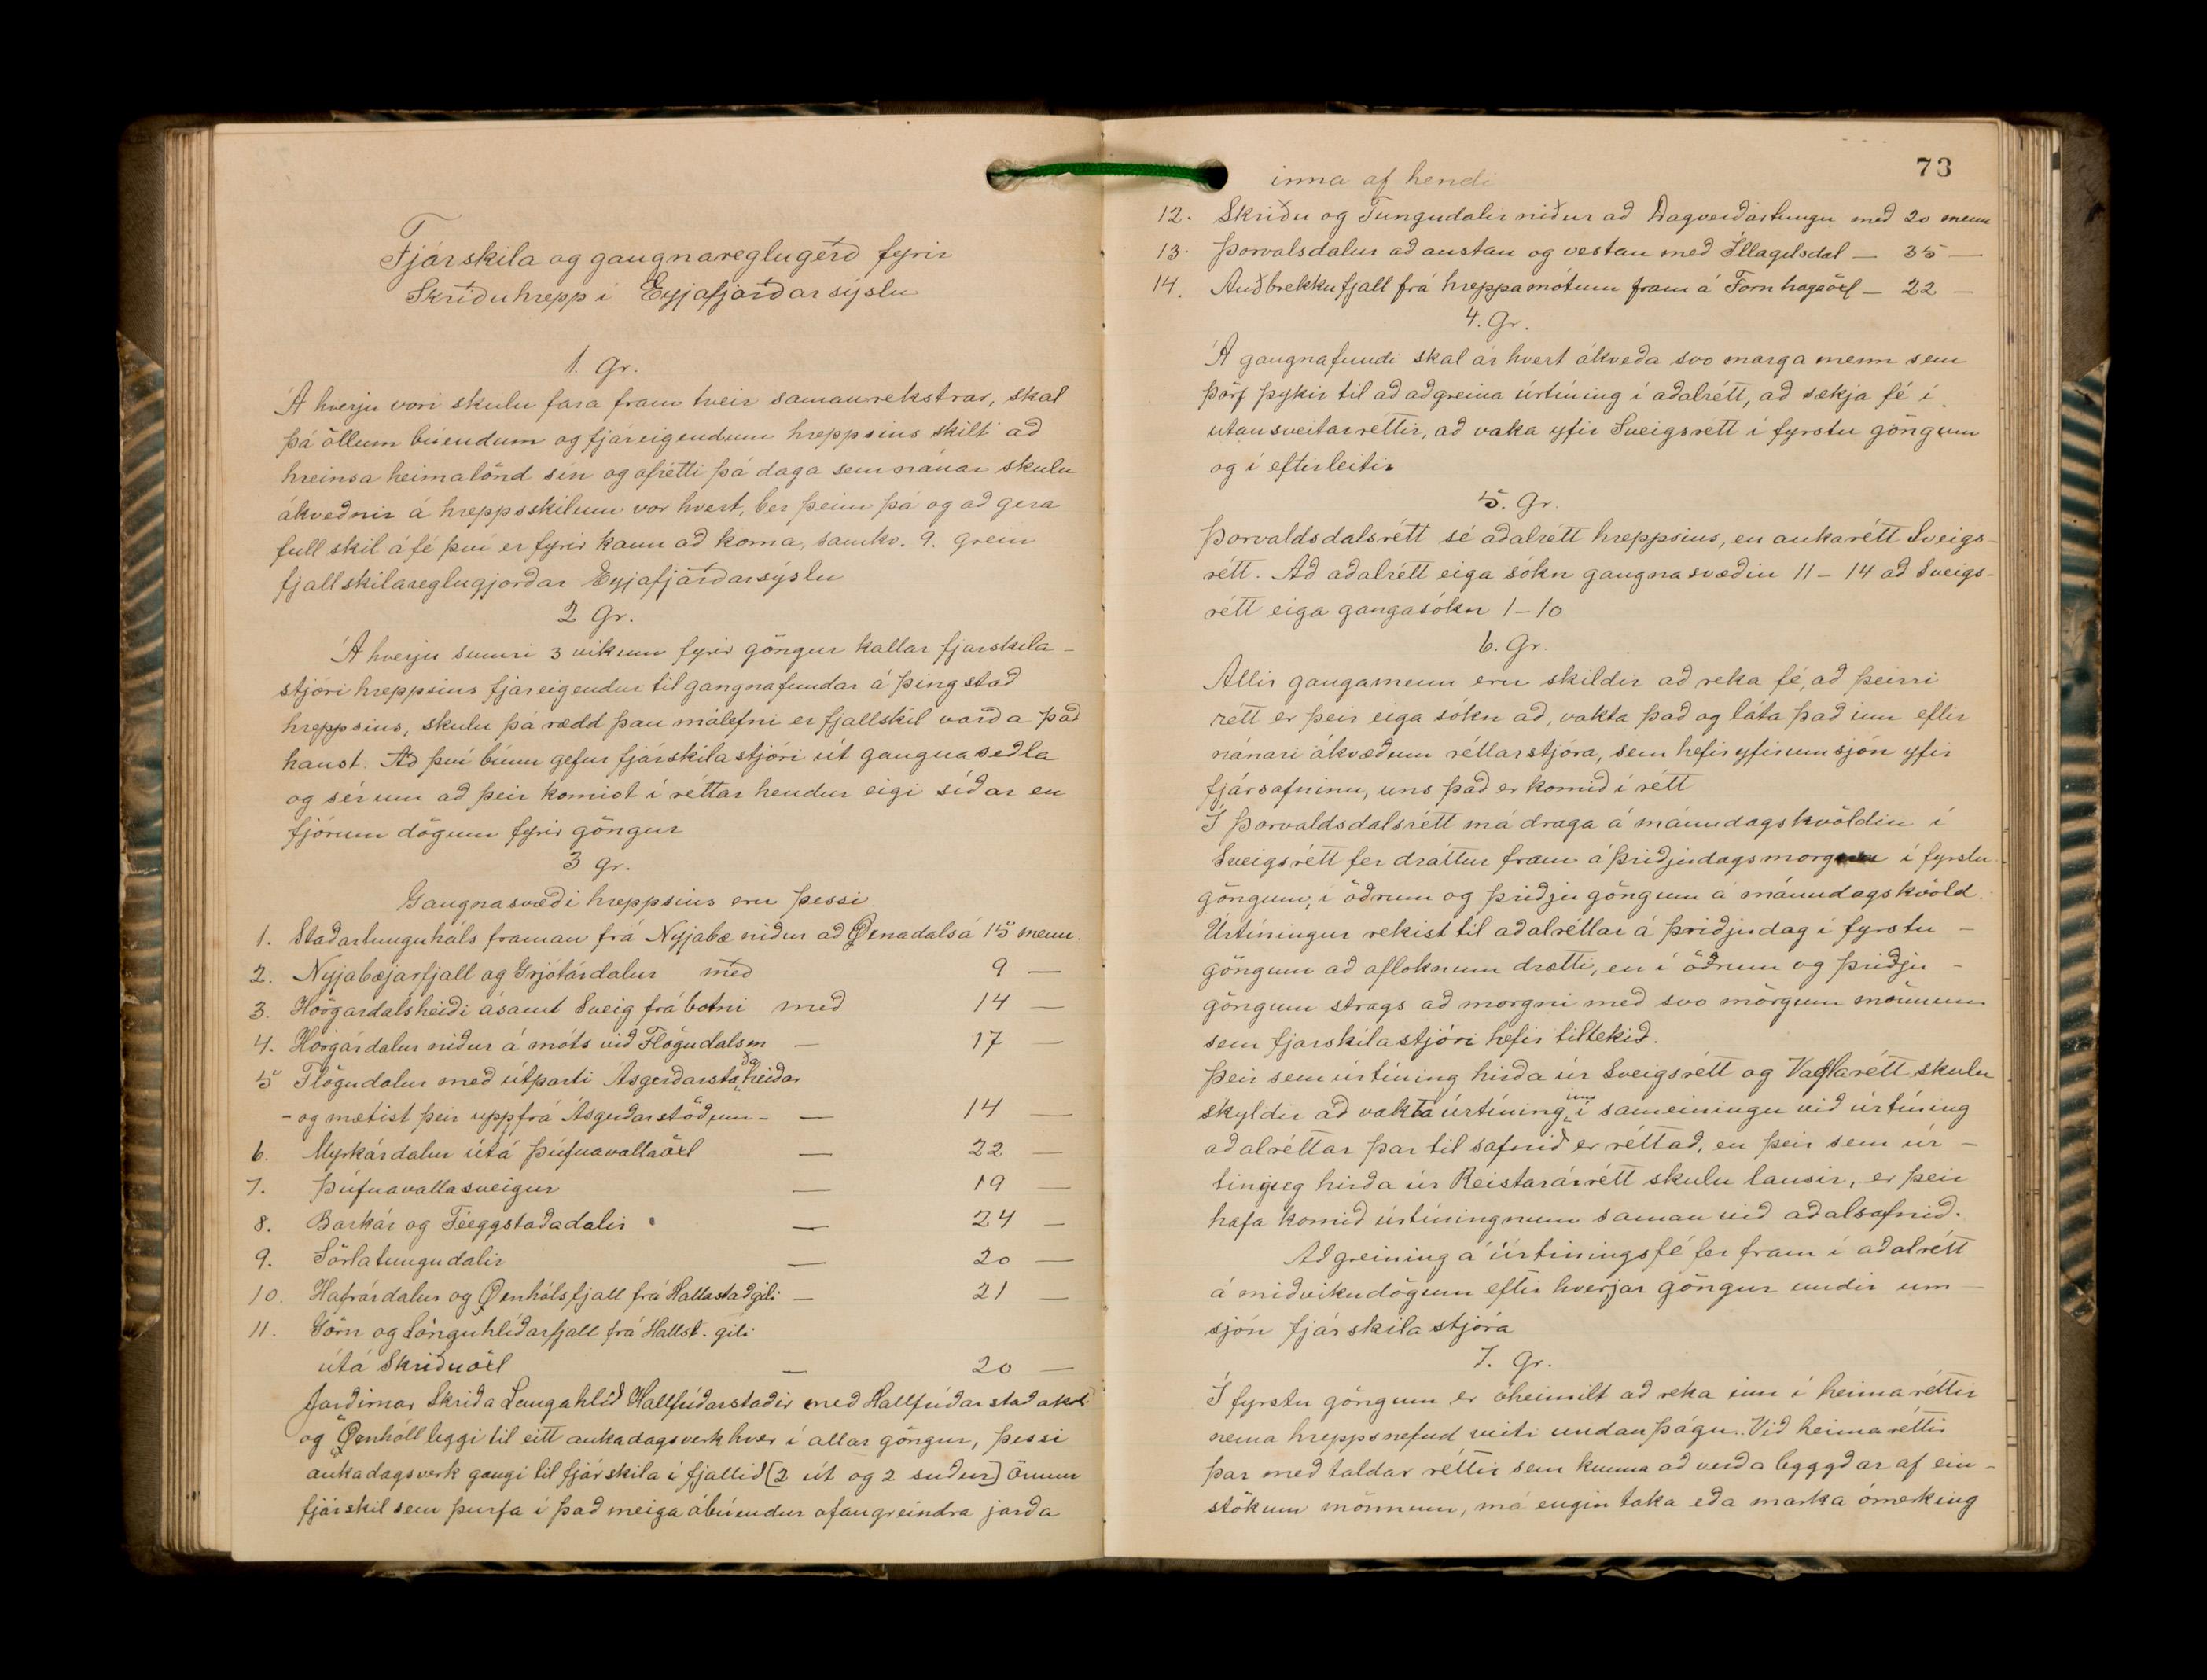 Fjárskila og gaungnareglugérð fyrir
Skriðuhrepp í Eyjafjarðarsýslu
1. Gr.
Á hverju vori skulu fara fram tveir samanrekstrar, skal
þá öllum búendum og fjáreigendum hreppsins skilt að
hreinsa heimalönd sín og afrétti þá daga sem nánar skulu
ákveðnir á hreppsskilum vor hvert, ber þeim þá og að gera
full skil á fé því er fyrir kann að koma, samkv. 9. grein
fjallskilareglugjörðar Eyjafjarðarsýslu
2 Gr.
Á hverju sumri 3 vikum fyrir göngur kallar fjarskila-
stjóri hreppsins fjáreigendur til gangnafundar á þingstað
hreppsins, skulu þá rædd þau málefni er fjallskil varða það
haust. Að því búnu gefur fjárskilastjóri út gaungnaseðla
og sér um að þeir komist í réttar hendur eigi síðar en
fjórum dögum fyrir göngur
3 Gr.
Gaungnasvæði hreppsins eru þessi
1. Staðartunguháls framan frá Nyjabæ niður að Øxnadalsá 15 menn.
2. Nyjabæjarfjall og Grjótárdalur með 9 —
3. Hörgardalsheiði ásamt Sveig frá botni með 14 —
4. Hörgárdalur niður á móts við Flögudalsm — 17 —
5 Flögudalur með útparti Ásgerðarstaðaheiðar
- og mætist þeir uppfrá Ásgerðarstöðum - — 14 —
6. Myrkárdalur útá Þúfnavallaöxl — 22 —
7. Þúfnavallasveigur — 19 —
8. Barkár og Féeggstaðadalir — 24 —
9. Sörlatungudalir — 20 —
10. Hafrárdalur og Øxnhólsfjall frá Hallastaðgili — 21 —
11. Görn og Lönguhlíðarfjall frá Hallst. gili
útá Skriðuöxl — 20 —
Jarðirnar Skriða Langahlíð Hallfríðarstaðir með Hallfríðarstaðakoti
og Øxnhóll leggi til eitt aukadagsverk hver í allar göngur, þessi
aukadagsverk gangi til fjárskila í fjallið [2 út og 2 suður] Önnur
fjárskil sem þurfa í það meiga ábúendur ofangreindra jarða
73
inna af hendi
12. Skriðu og Tungudalir niður að Dagverðartungu með 20 menn
13. Þorvalsdalur að austan og vestan með Íllagilsdal — 35 —
14. Auðbrekkufjall frá hreppamótum fram á Fornhagaöxl — 22 —
4. Gr.
Á gaungnafundi skal ár hvert ákveða svo marga menn sem
þörf þykir til að aðgreina úrtíning í aðalrétt, að sækja fé í
utansveitarréttir, að vaka yfir Sveigsrett í fyrstu göngum
og í eftirleitir
5. Gr.
Þorvaldsdalsrétt sé aðalrétt hreppsins, en aukarétt Sveigs-
rétt. Að aðalrétt eiga sókn gaungnasvæðin 11 – 14 að Sveigs-
rétt eiga gangasókn 1 – 10
6. Gr.
Allir gaungamenn eru skildir að reka fé, að þeirri
rétt er þeir eiga sókn að, vakta það og láta það inn eftir
nánari ákvæðum réttarstjóra, sem hefir yfirumsjón yfir
fjársafninu, uns það er komið í rétt
Í Þorvaldsdalsrétt má draga á mánudagskvöldin í
Sveigsrétt fer dráttur fram á þriðjudagsmorgna í fyrstu
göngum, í öðrum og þriðju göngum á mánudagskvöld.
Úrtíningur rekist til aðalréttar á þriðjudag í fyrstu –
göngum að afloknum drætti, en í öðrum og þriðju –
göngum strags að morgni með svo mörgum mönnum
sem fjarskilastjóri hefir tiltekið.
Þeir sem úrtíning hirða úr Sveigsrétt og Vaglarétt skulu
skyldir að vakta úrtíninginn í sameiningu við úrtíning
aðalréttar þar til safnið er réttað, en þeir sem úr –
tining hirða úr Reistarárrétt skulu lausir, er þeir
hafa komið úrtíningnum saman við aðalsafnið.
Aðgreining á Úrtíningsfé fer fram í aðalrétt
á miðvikudögum eftir hverjar göngur undir um –
sjón fjárskilastjóra
7. Gr.
Í fyrstu göngum er óheimilt að reka inn í heimaréttir
nema hreppsnefnd veiti undanþágu. Við heimaréttir
þar með taldar réttir sem kunna að verða bygggðar af ein –
stökum mönnum, má engin taka eða marka ómerking